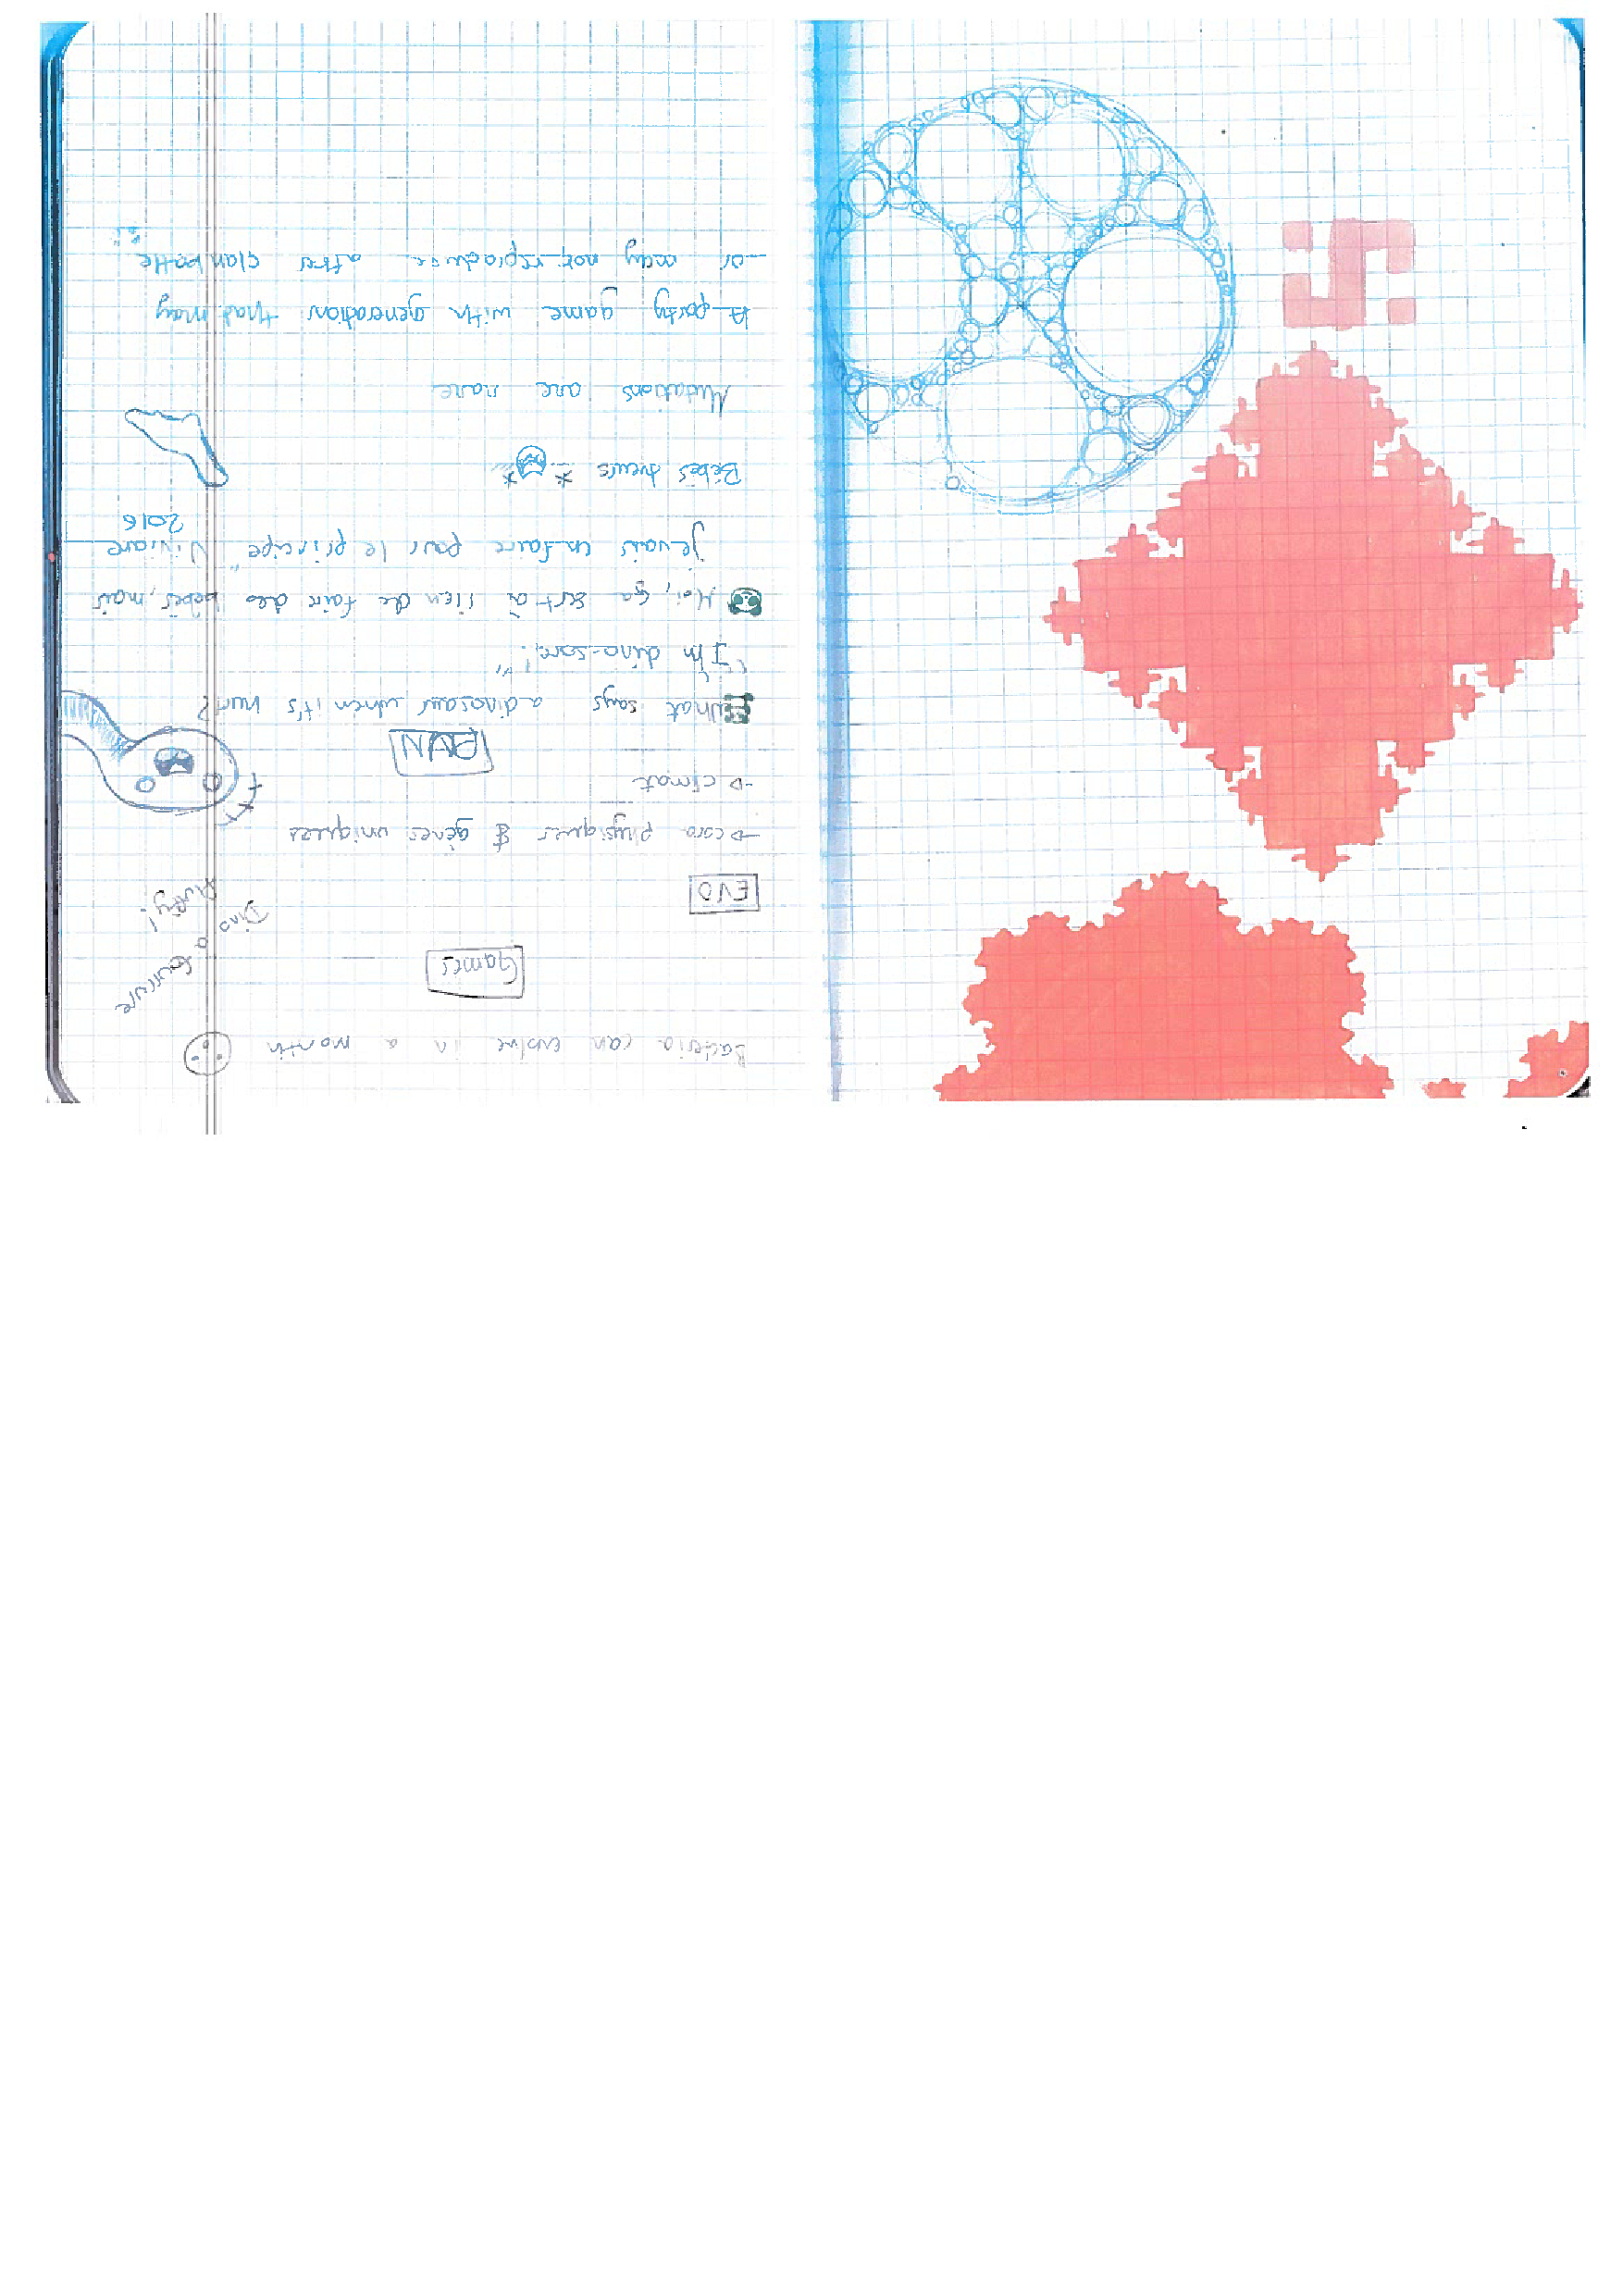 Bacteria can evolve in a month
Games
Dino à fourrure
Fluffy!
EVO
→ cara physiques & gènes uniques
→ climat
PUN
What says a dinosaur when it's hurt?
"I'm dino-sore!"
Moi, ça sert à rien de faire des bébés, mais
je vais en faire pour le principe" Viviane
2016
Bébés
Mutations are rare
A party game with generations that may
or may not reproduce after clan battle